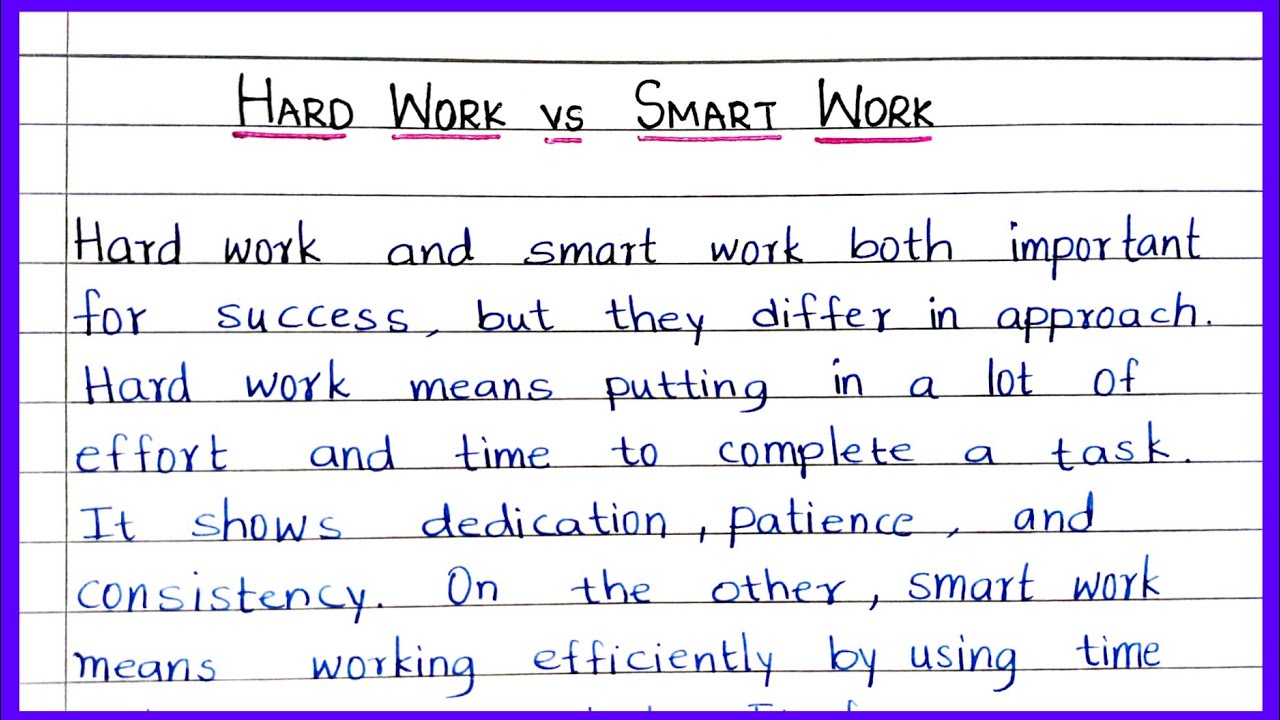 HARD WORK VS SMART WORK
Hard work and smart work both important
for success, but they differ in approach.
Hard work means putting in a lot of
effort and time to complete a task.
It shows dedication, patience, and
consistency. On the other, smart work
means working efficiently by using time